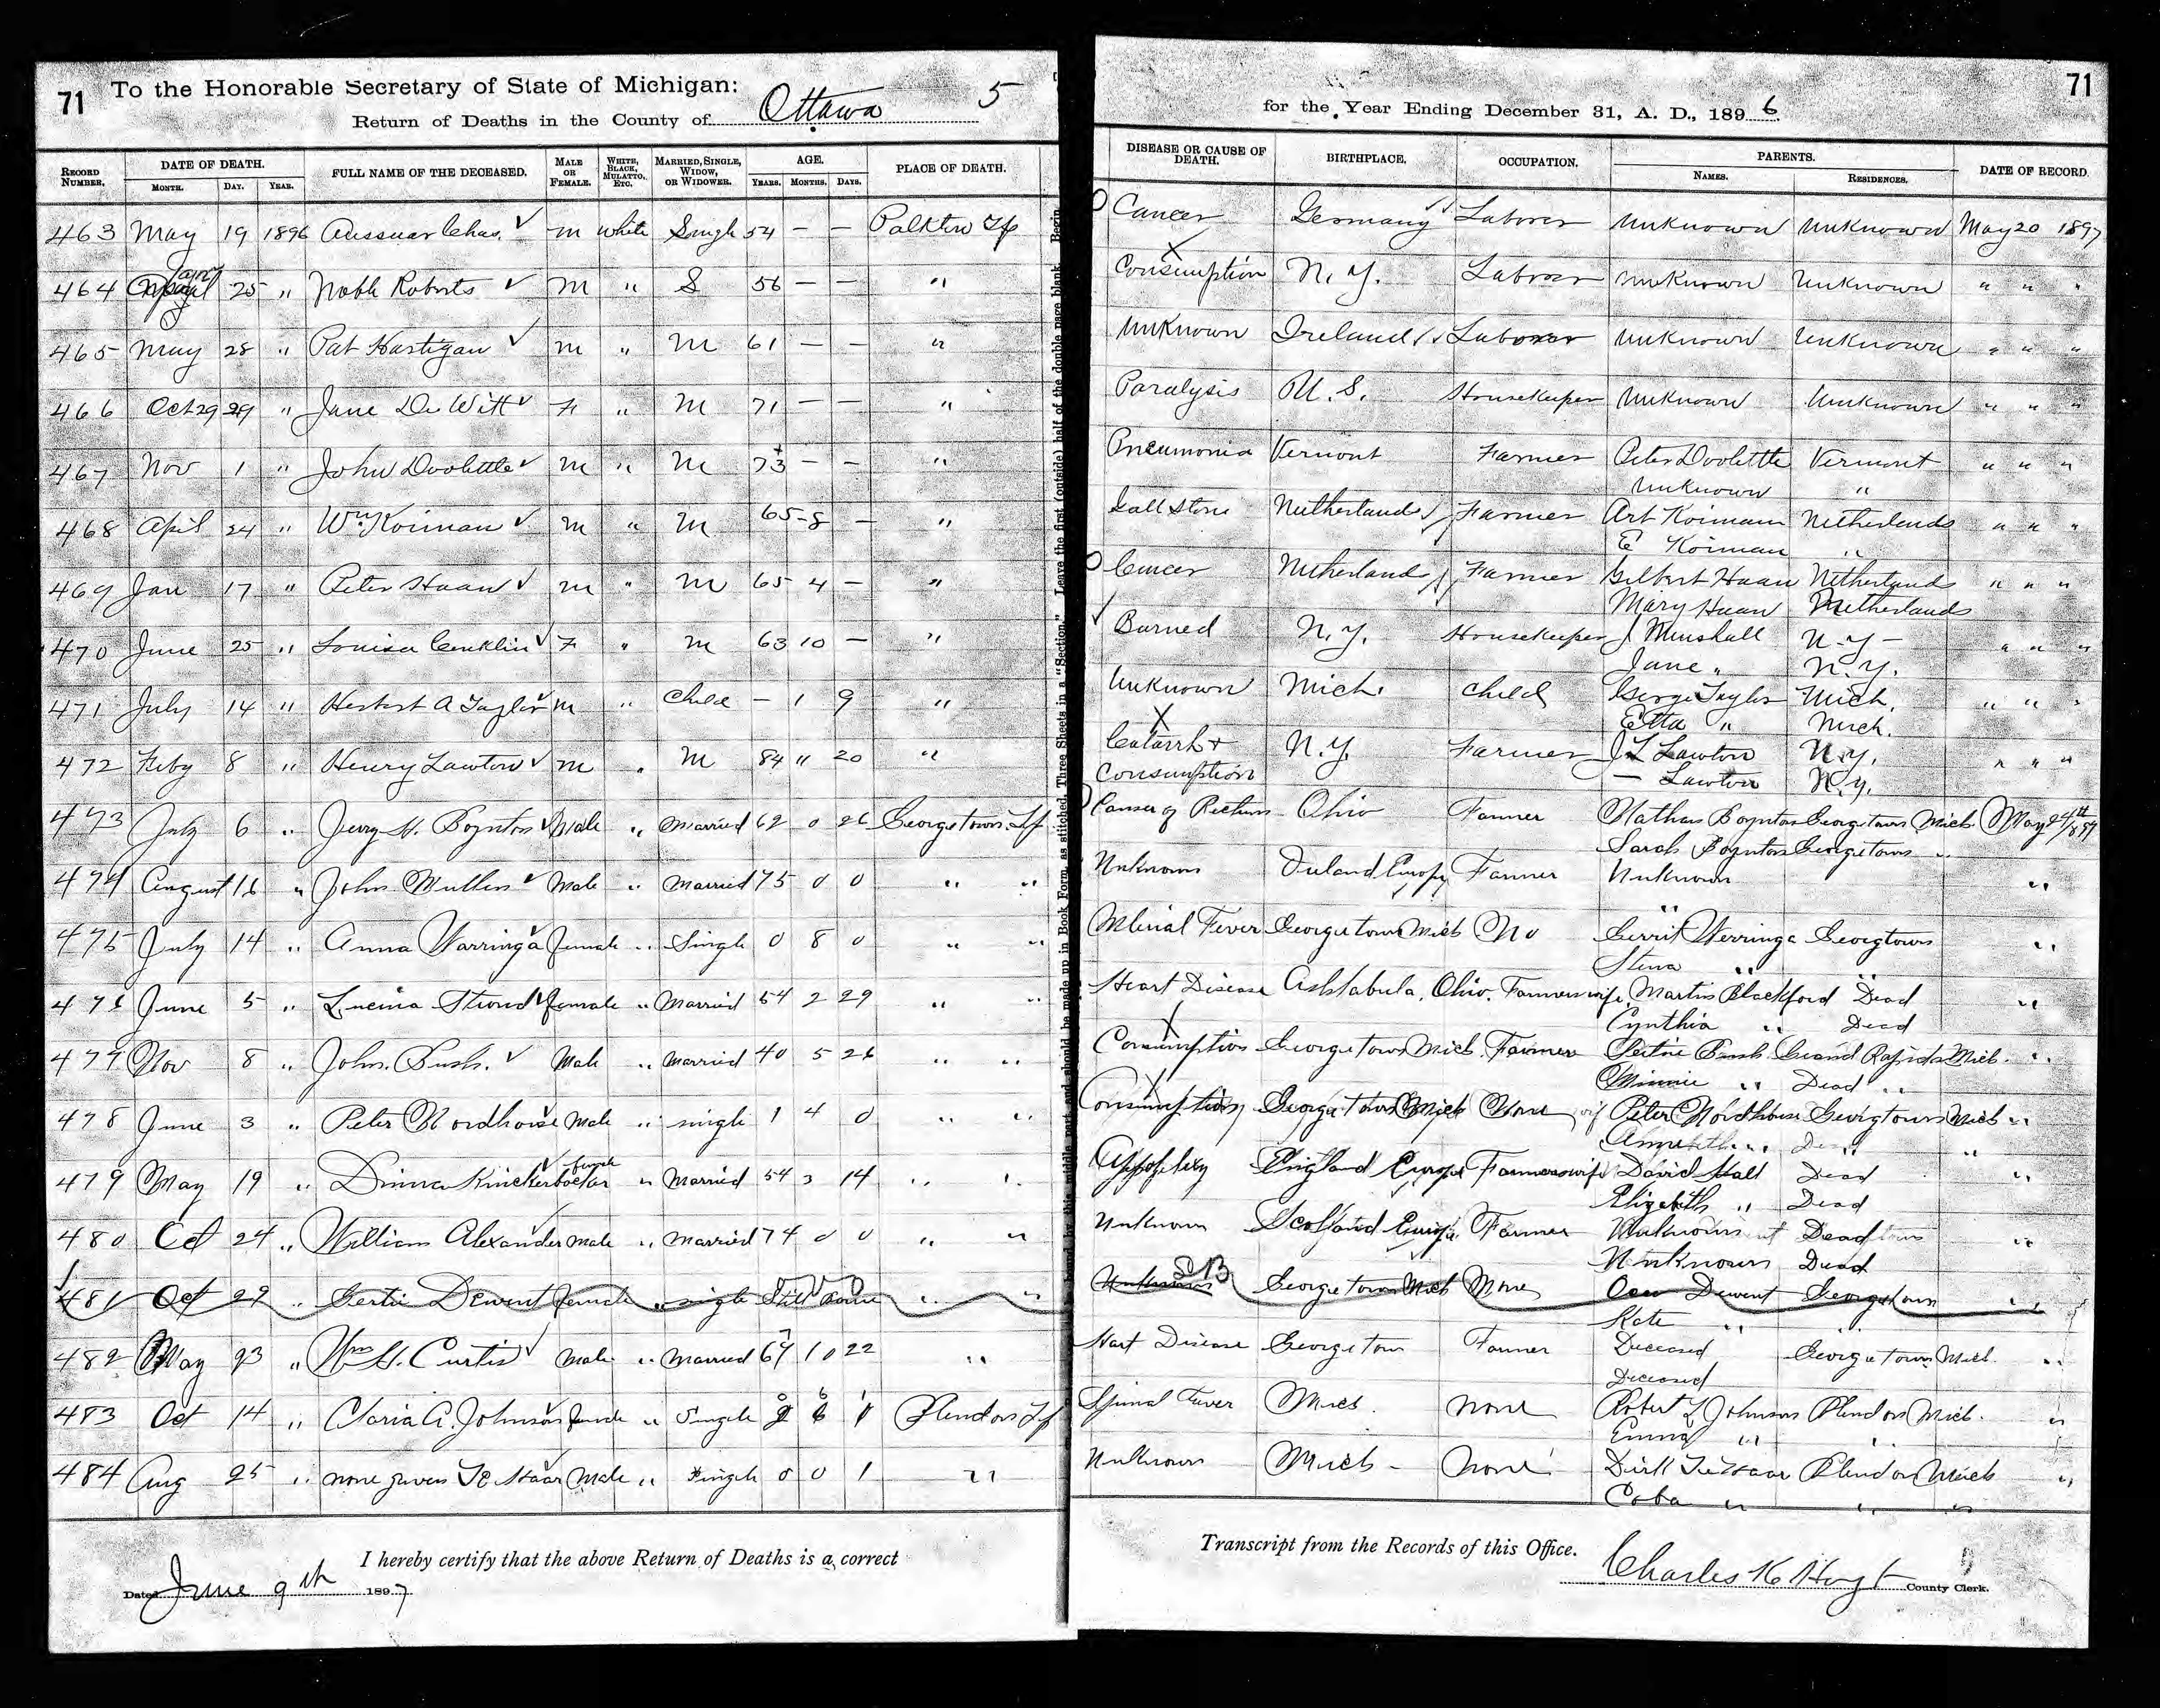 71
To the Honorable Secretary of State of Michigan:
Return of Deaths in the County of Ottawa 5
for the Year Ending December 31, A. D., 1896
71
RECORD NUMBER. DATE OF DEATH. MONTH. DAY. YEAR. FULL NAME OF THE DECEASED. MALE OR FEMALE. WHITE, BLACK, MULATTO, ETC. MARRIED, SINGLE, WIDOW, OR WIDOWER. AGE. YEARS. MONTHS. DAYS. PLACE OF DEATH. DISEASE OR CAUSE OF DEATH. BIRTHPLACE. OCCUPATION. PARENTS. NAMES. RESIDENCES. DATE OF RECORD.
463 May 19 1896 Chas. m white Single 54 — — Polkton Tp Cancer Germany Laborer Unknown Unknown May 20 1897
464 25 " Noble Roberts m " S 56 — — " Consumption N. Y. Laborer Unknown Unknown " " "
465 May 28 " Pat Hartigan m " M 61 — — " Unknown Ireland Laborer Unknown Unknown " " "
466 Oct 29 29 " Jane De Witt F " M 71 — — " Paralysis U. S. Housekeeper Unknown Unknown " " "
467 Nov 1 " John Doolittle m " M 73 — — " Pneumonia Vermont Farmer Peter Doolittle Vermont " " "
Unknown "
468 April 24 " Wm Koiman m " M 65-8 — " Gall Stone Netherlands Farmer Art Koiman Netherlands " " "
E Koiman "
469 Jan 17 " Peter Haan m " M 65 4 — " Cancer Netherlands Farmer Gilbert Haan Netherlands " " "
Mary Haan Netherlands
470 June 25 " Louisa Conklin F " M 63 10 — " Burned N. Y. Housekeeper J Munshall N. Y — " " "
Jane " N. Y.
471 July 14 " Herbert A Taylor m " Child — 1 9 " Unknown Mich. Child George Taylor Mich. " " "
Etta " Mich.
472 Feby 8 " Henry Lawton m " M 84 " 20 " Catarrh + N. Y. Farmer J L Lawton N. Y. " " "
Consumption — Lawton N. Y.
473 July 6 " Jerry H. Boynton Male " Married 62 0 26 Georgetown Tp Cancer of Rectum Ohio Farmer Nathan Boynton Georgetown Mich. May 24th/897
Sarah Boynton Georgetown "
474 August 16 " John Mullen Male " Married 75 0 0 " " Unknown Ireland Europe Farmer Unknown "
"
475 July 14 " Anna Warringa female " Single 0 8 0 " " Fever Georgetown Mich No Gerrit Werringa Georgtown "
Stena " "
476 June 5 " Lucina Stroud female " Married 54 2 29 " " Heart Disease Ashtabula, Ohio. Farmers wife. Martin Blackford Dead "
Cynthia " Dead
477 Nov 8 " John. Bush. Male " Married 40 5 26 " " Consumption Georgetown Mich. Farmer Bush Grand Rapids Mich. "
Minnie " Dead "
478 June 3 " Peter Nordhouse Male " single 1 4 0 " " Consumption Georgetown Mich None Peter Nordhouse Georgtown Mich "
"
479 May 19 " Dinna Kinckerboctor female " Married 54 3 14 " " England Europe Farmerswife David Hall Dead "
Elizabeth " Dead
480 Oct 24 " William Alexander Male " Married 74 0 0 " " Unknown Scotland Europe. Farmer Unknown Dead "
Unknown Dead
481 Oct 29 " Gertie Dewent female " single Still Borne " " Unknown SB Georgetown Mich None Dewent Georgetown "
Kate " "
482 May 23 " Wm H. Curtis Male " Married 67 10 22 " Hart Disease Georgetown Farmer Deceased Georgetown Mich. "
Deceased
483 Oct 14 " Claria A. Johnson female " Single 0 6 1 Blendon Tp Spinal Fever Mich. None Robert L Johnson Blendon Mich. "
Emma " "
484 Aug 25 " none given Te Haar Male " Single 0 0 1 " Unknown Mich - None Dirk Te Haar Blendon Mich "
Coba " " "
I hereby certify that the above Return of Deaths is a correct
Transcript from the Records of this Office.
Dated June 9th 1897
Charles K Hoyt County Clerk.